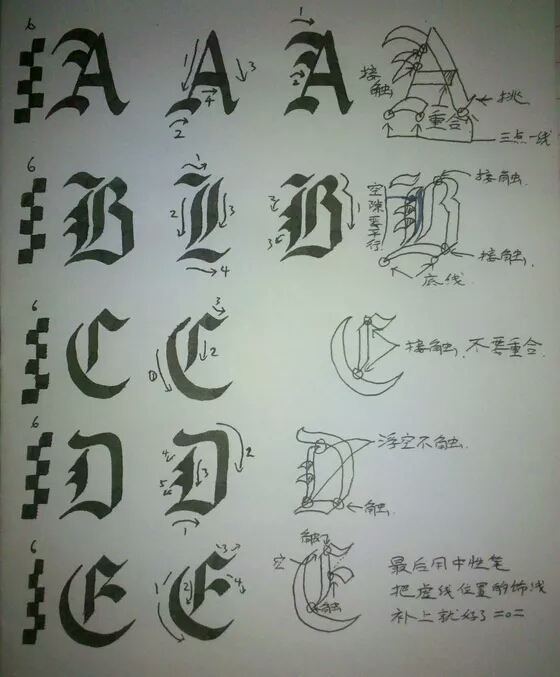 6 A A 1 2 3 4 A 1 2 接触 重合 挑
三点一线
6 B 1 2 3 4 B 1 2 3 空隙要平行 B 接触
接触
底线
6 C C 1 2 3 C 接触,不要重合.
6 D D 1 2 3 4 5 D 浮空不触.
触.
6 E E 1 2 3 4 E 触 空 触
最后用中性笔
把虚线位置的饰线
补上就好了=o=